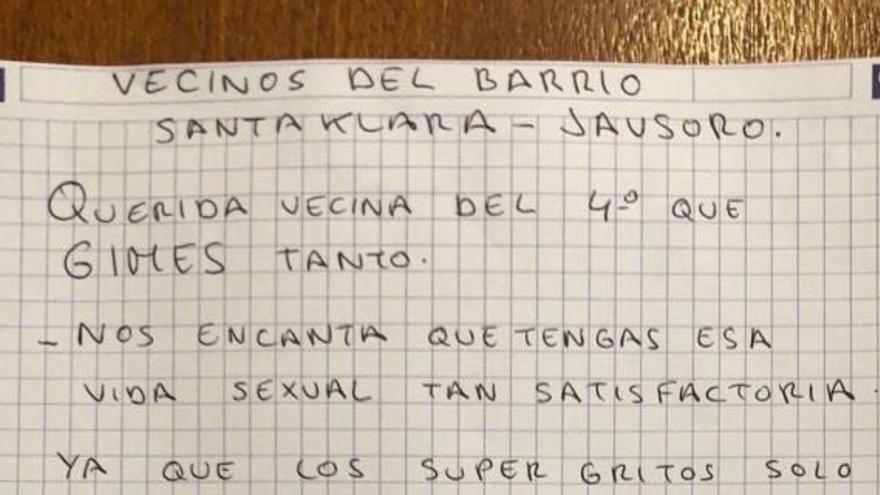 VECINOS DEL BARRIO
SANTA KLARA - JAUSORO.
QUERIDA VECINA DEL 4º QUE
GIMES TANTO.
- NOS ENCANTA QUE TENGAS ESA
VIDA SEXUAL TAN SATISFACTORIA.
YA QUE LOS SUPER GRITOS SOLO